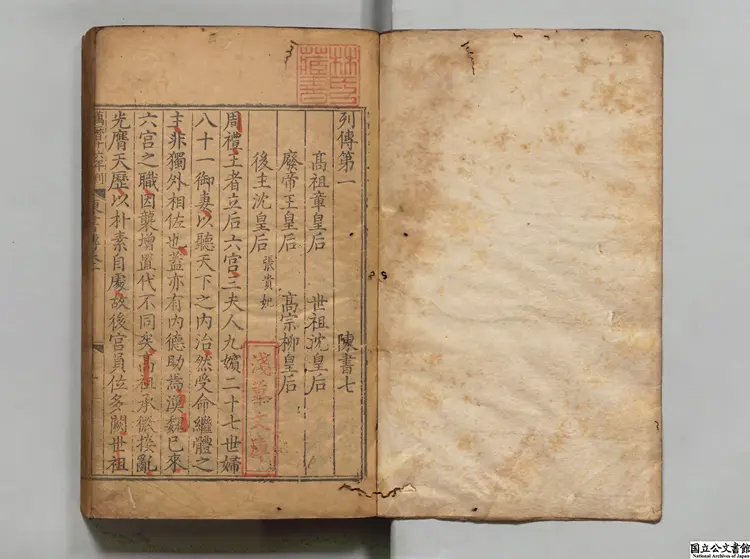 列傳第一　陳書七
高祖章皇后　世祖沈皇后
廢帝王皇后　高宗柳皇后
後主沈皇后　張貴妃
周禮王者立后六宮三夫人九嬪二十七世婦
八十一御妻以聽天下之內治然受命繼體之
主非獨外相佐也蓋亦有內德助焉漢魏已來
六宮之職因襲增置代不同矣高祖承微接亂
光膺天歷以朴素自處故後宮員位多闕世祖
萬曆十六年刊
林氏藏書
淺草文庫
国立公文書館
National Archives of Japan